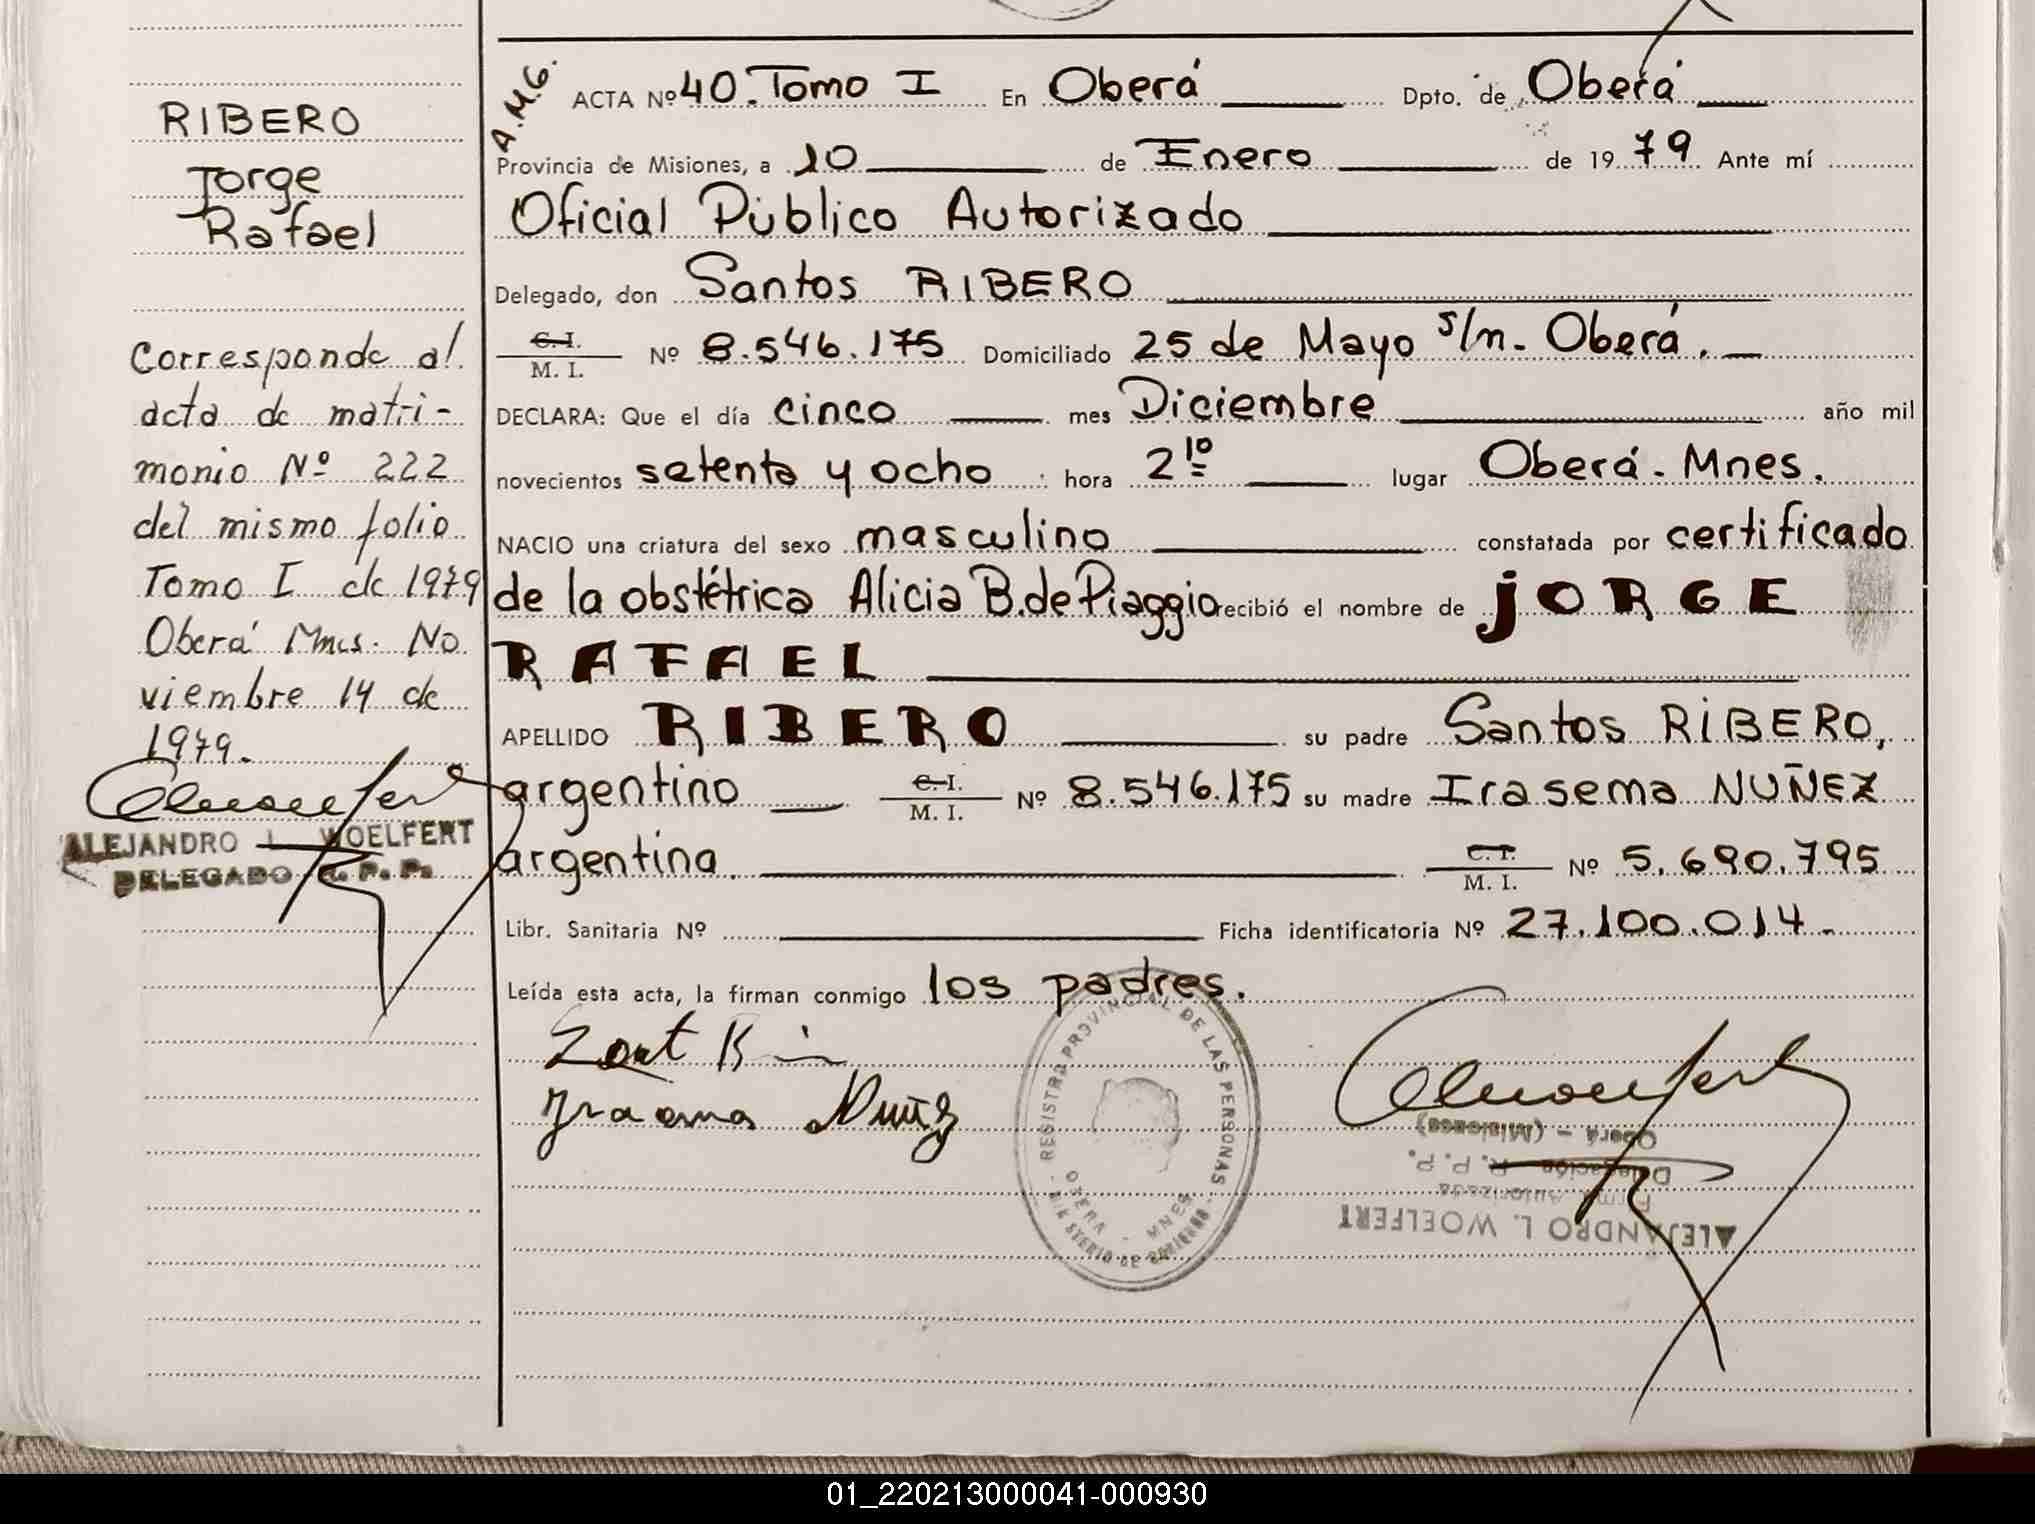 RIBERO
Jorge
Rafael
Corresponde al
acta de matri-
monio Nº 222
del mismo folio
Tomo I de 1979
Oberá Mnes. No
viembre 14 de
1979.
ALEJANDRO L. WOELFERT
DELEGADO R. P. P.
A.M.G.
ACTA Nº 40. Tomo I En Oberá Dpto. de Oberá
Provincia de Misiones, a 10 de Enero de 1979 Ante mí
Oficial Público Autorizado
Delegado, don Santos RIBERO
C. I.
M. I. Nº 8.546.175 Domiciliado 25 de Mayo s/n. Oberá.
DECLARA: Que el día cinco mes Diciembre año mil
novecientos setenta y ocho hora 2 10 lugar Oberá - Mnes.
NACIO una criatura del sexo masculino constatada por certificado
de la obstétrica Alicia B. de Piaggio recibió el nombre de JORGE
RAFAEL
APELLIDO RIBERO su padre Santos RIBERO,
argentino C. I. M. I. Nº 8.546.175 su madre Irasema NUÑEZ
argentina. C. I. M. I. Nº 5.690.795
Libr. Sanitaria Nº Ficha identificatoria Nº 27.100.014.-
Leída esta acta, la firman conmigo los padres.
Irasema Nuñez
REGISTRO PROVINCIAL DE LAS PERSONAS
OBERA - MNES
MINISTERIO DE GOBIERNO
ALEJANDRO L. WOELFERT
Firma Autorizada
Delegación R. P. P.
Oberá - (Misiones)
01_220213000041-000930